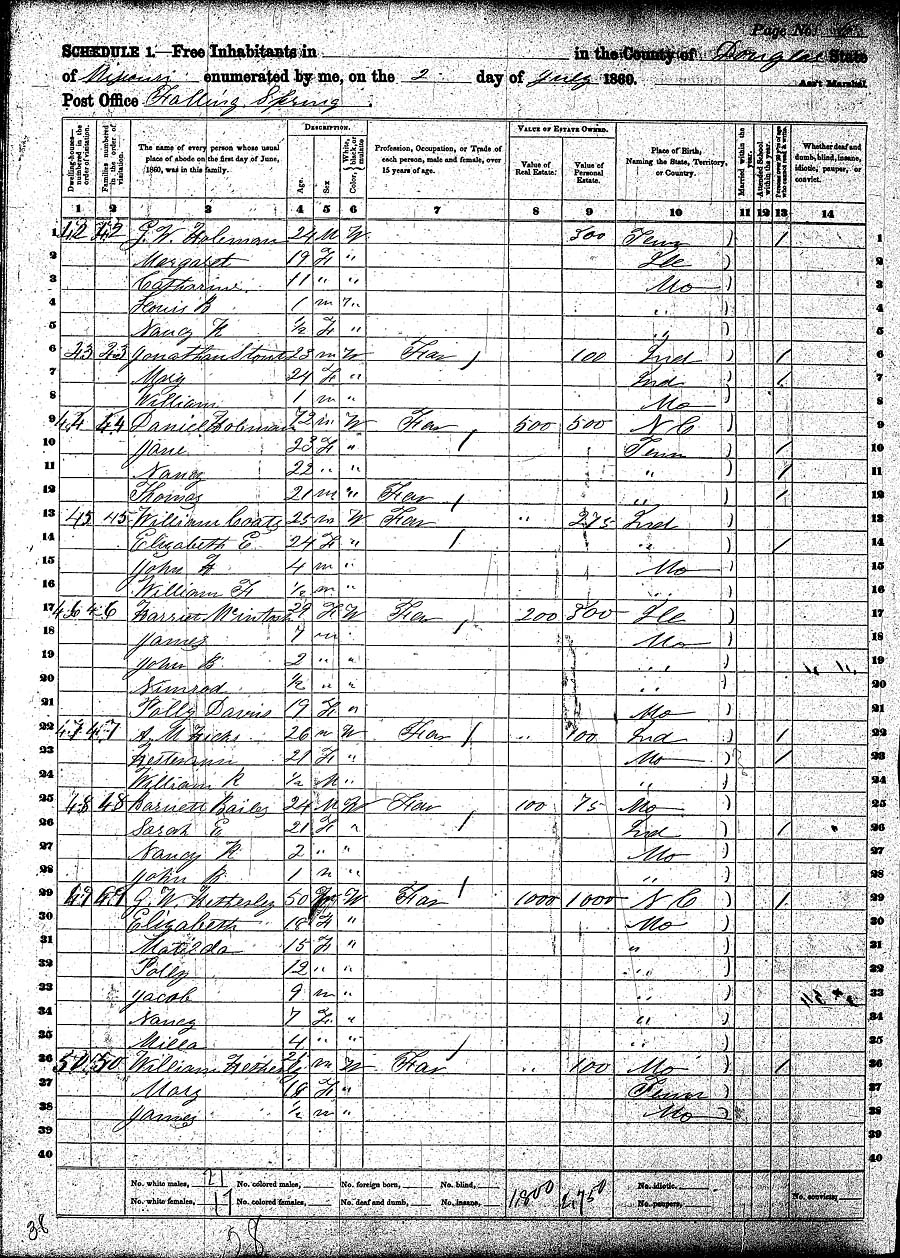 Page No.
SCHEDULE 1.—Free Inhabitants in in the County of Douglas State
of Missouri enumerated by me, on the 2 day of July 1860. Ass't Marshal.
Post Office Falling Spring
Dwelling-houses—numbered in the order of visitation.
Families numbered in the order of visitation.
The name of every person whose usual place of abode on the first day of June, 1860, was in this family.
DESCRIPTION.
Age.
Sex
Color, White, black, or mulatto
Profession, Occupation, or Trade of each person, male and female, over 15 years of age.
VALUE OF ESTATE OWNED.
Value of Real Estate.
Value of Personal Estate.
Place of Birth, Naming the State, Territory, or Country.
Married within the year.
Attended School within the year.
Whether deaf and dumb, blind, insane, idiotic, pauper, or convict.
1 2 3 4 5 6 7 8 9 10 11 12 13 14
1 42 42 G. W. Holeman 24 M W 300 Tenn ) / 1
2 Margaret 19 F " Ill ) 2
3 Catharine 11 " " Mo ) 3
4 Louis B 1 m " " ) 4
5 Nancy F ½ F " " ) 5
6 43 43 Jonathan Stout 23 m W Far / 100 Ind ) / 6
7 Mary 24 F " Ind ) / 7
8 William 1 m " Mo ) 8
9 44 44 Daniel Holeman 72 m W Far 500 500 N C ) 9
10 Jane 23 F " / Tenn ) / 10
11 Nancy 22 " " " ) / 11
12 Thomas 21 m " Far / " ) / 12
13 45 45 William Coats 25 m W Far " 275 Ind ) 13
14 Elizabeth E 24 F " / " ) / 14
15 John F 4 m " Mo ) 15
16 William F ½ m " " ) 16
17 46 46 Harriet McIntosh 29 F W Far / 200 300 Ill ) 17
18 James 7 m Mo ) 18
19 John B 2 " " " ) 19
20 Nimrod ½ " " " ) 20
21 Polly Davis 19 F " Mo ) 21
22 47 47 A. M Hicks 26 m W Far / " 100 Ind ) / 22
23 Hesterann 21 F " Mo ) / 23
24 William R ½ M " " ) 24
25 48 48 Barnett Bailey 24 M W Far 100 75 Mo ) 25
26 Sarah E 21 F " / Ind ) / 26
27 Nancy K 2 " " Mo ) 27
28 John B 1 m " " ) 28
29 49 49 G. W. Hetherley 50 W Far / 1000 1000 N C ) / 29
30 Elizabeth 18 F " Mo ) 30
31 Matilda 15 F " " ) 31
32 Polly 12 " " " ) 32
33 Jacob 9 m " " ) 33
34 Nancy 7 F " " ) 34
35 Milla 4 " " / " ) 35
36 50 50 William Hetherly 21 m W Far " 100 Mo ) / 36
37 Mary 18 F " Tenn ) 37
38 James ½ m " Mo ) 38
39 39
40 40
No. white males, 21 No. colored males, No. foreign born, No. blind, 1800 2,750 No. idiotic,
No. white females, 17 No. colored females, No. deaf and dumb, No. insane, No. paupers, No. convicts,
38
38